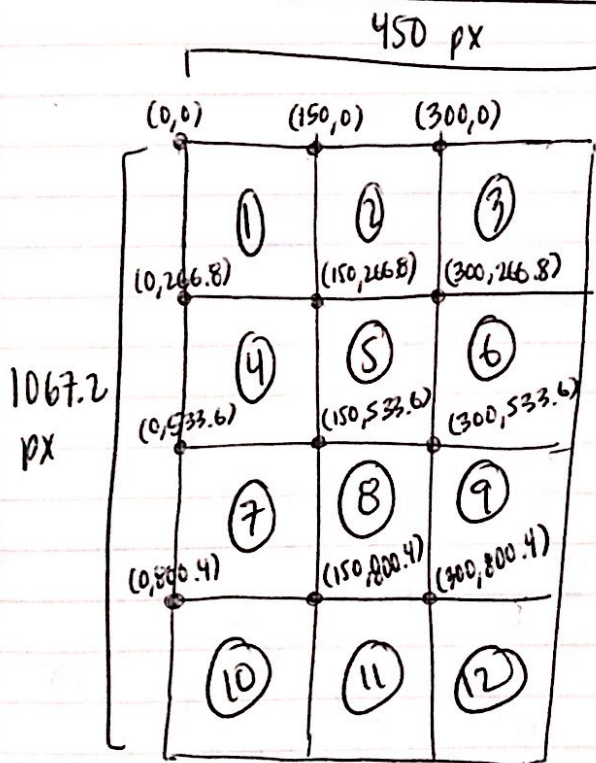 450 px
(0,0) (150,0) (300,0)
1 2 3
(0,266.8) (150,266.8) (300,266.8)
4 5 6
1067.2
px
(0,533.6) (150,533.6) (300,533.6)
7 8 9
(0,800.4) (150,800.4) (300,800.4)
10 11 12